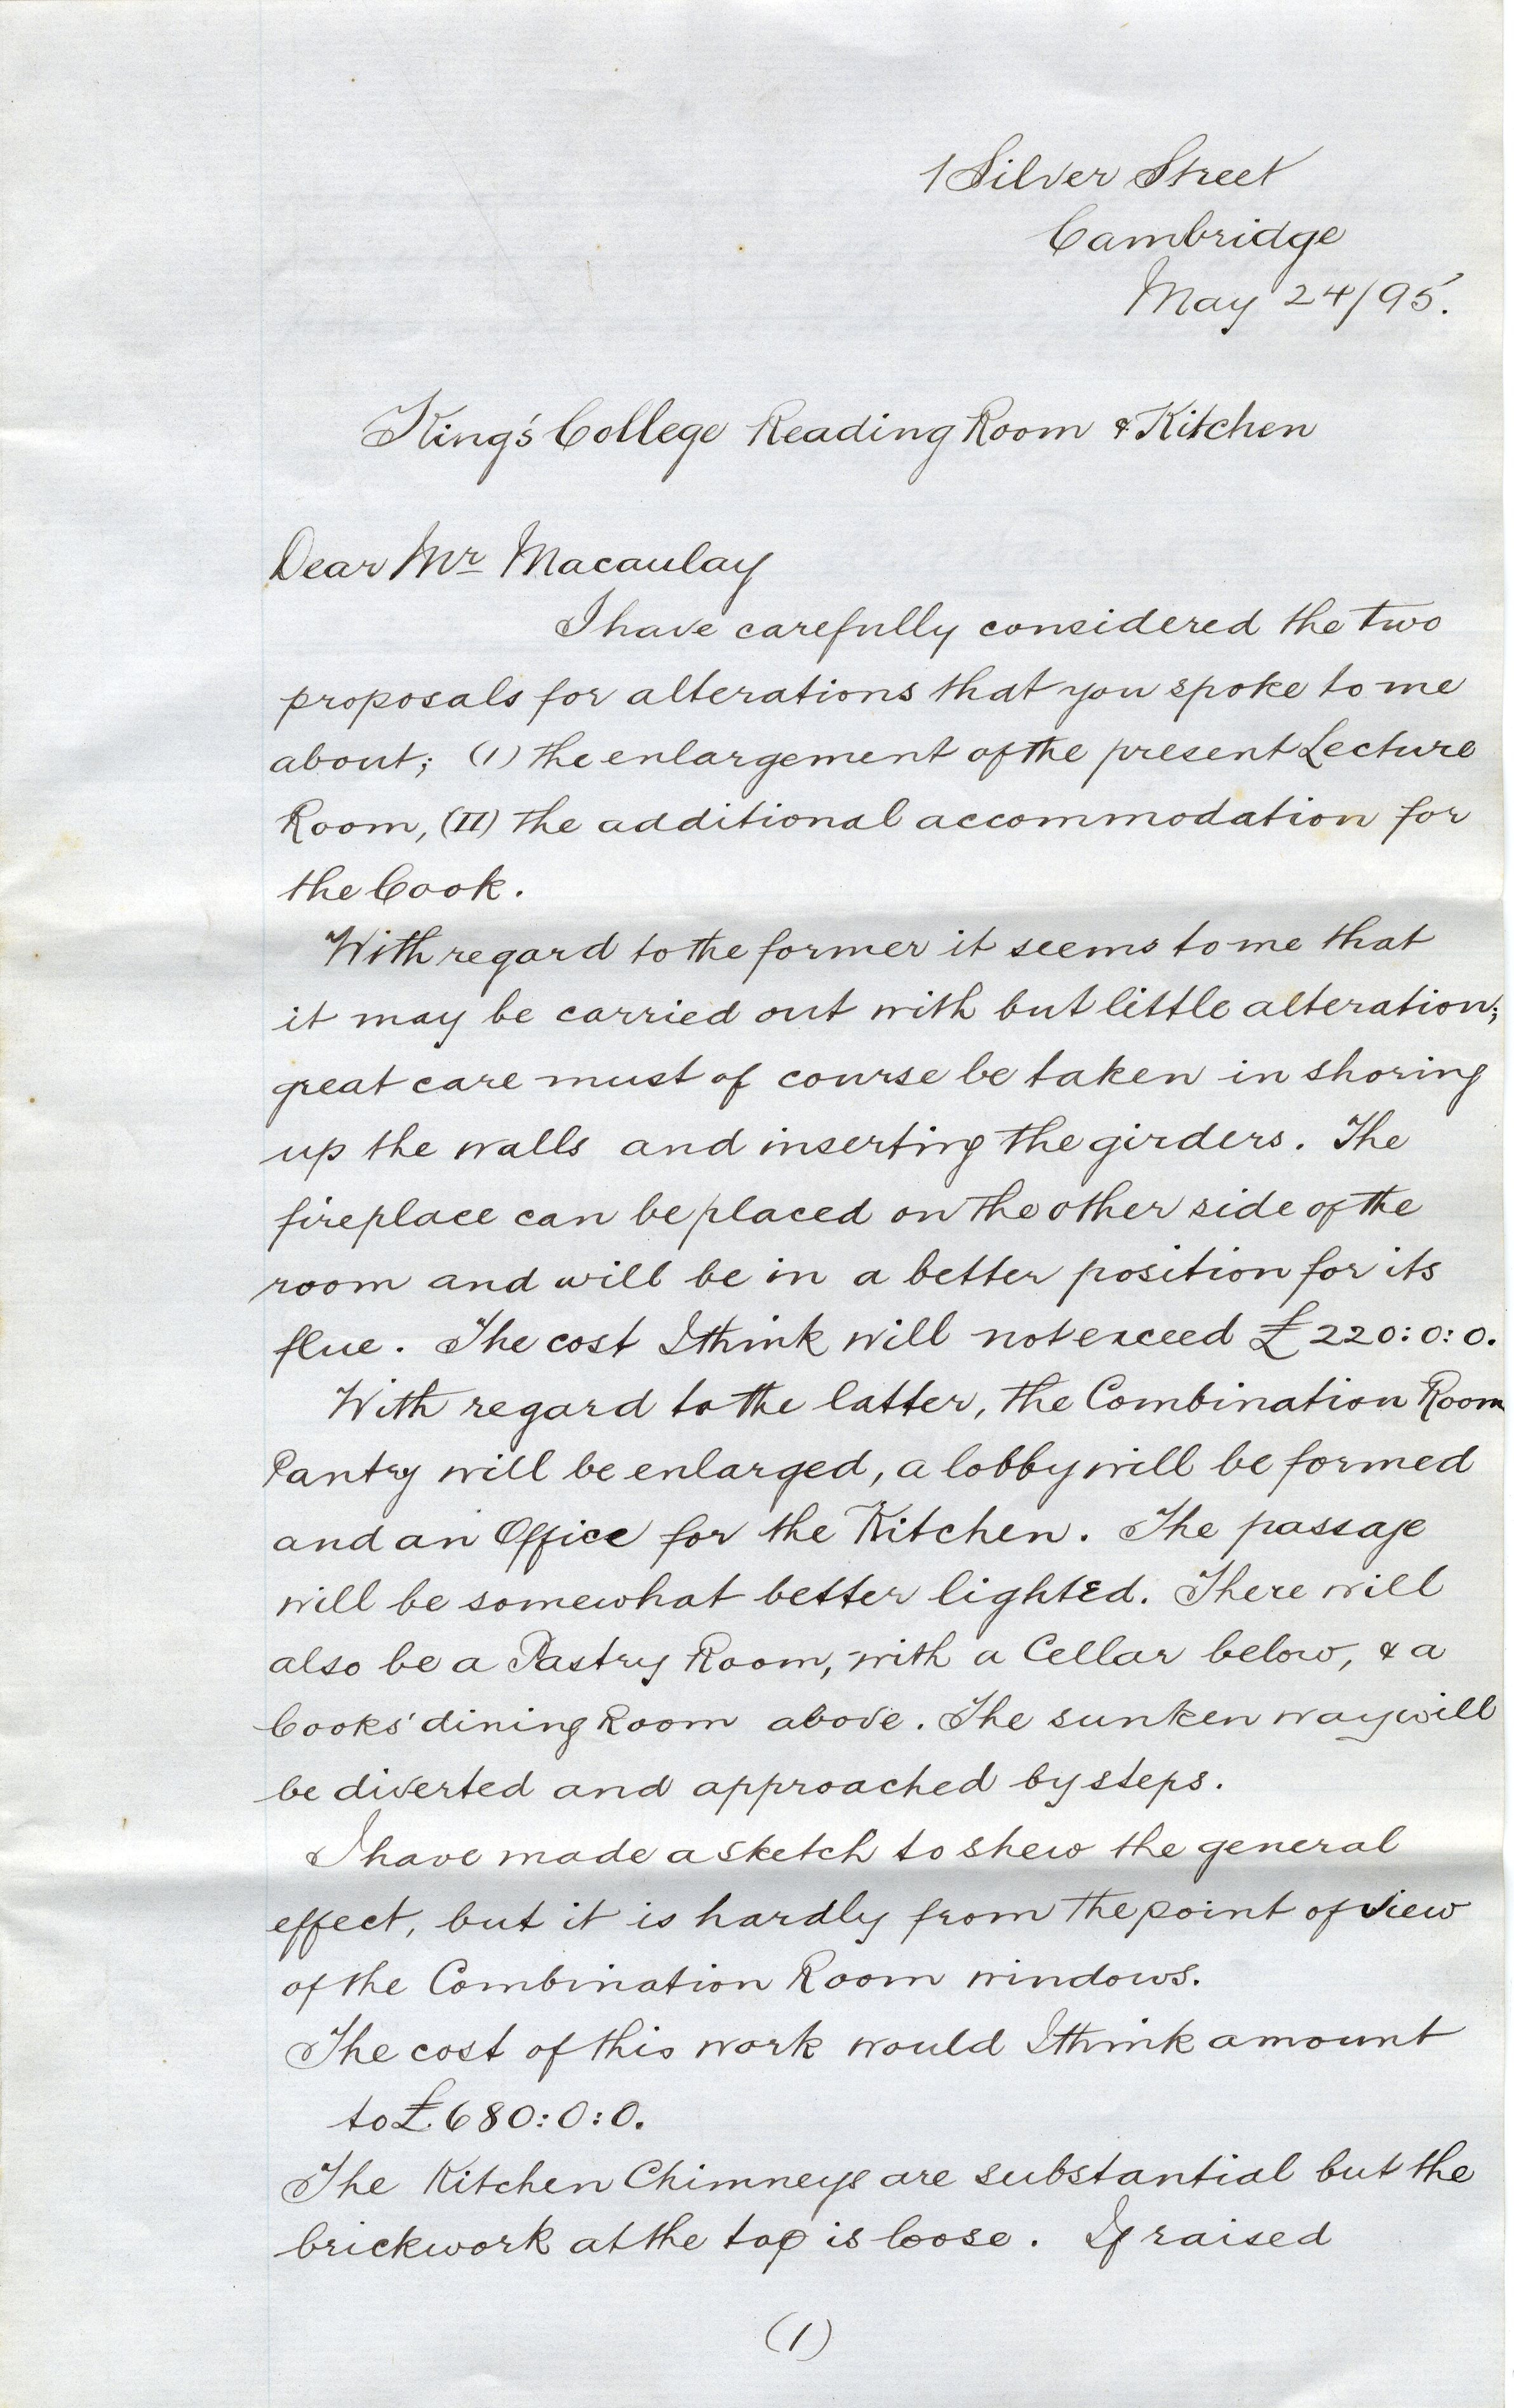 1 Silver Street
Cambridge
May 24/95.
King's College Reading Room & Kitchen
Dear Mr Macaulay
I have carefully considered the two
proposals for alterations that you spoke to me
about; (I) the enlargement of the present Lecture
Room, (II) the additional accommodation for
the Cook.
With regard to the former it seems to me that
it may be carried out with but little alteration;
great care must of course be taken in shoring
up the walls and inserting the girders. The
fireplace can be placed on the other side of the
room and will be in a better position for its
flue. The cost I think will not exceed £220:0:0.
With regard to the latter, the Combination Room
Pantry will be enlarged, a lobby will be formed
and an Office for the Kitchen. The passage
will be somewhat better lighted. There will
also be a Pastry Room, with a Cellar below, & a
Cooks' dining Room above. The sunken way will
be diverted and approached by steps.
I have made a sketch to shew the general
effect, but it is hardly from the point of view
of the Combination Room windows.
The cost of this work would I think amount
to £680:0:0.
The Kitchen Chimneys are substantial but the
brickwork at the top is loose. If raised
(1)